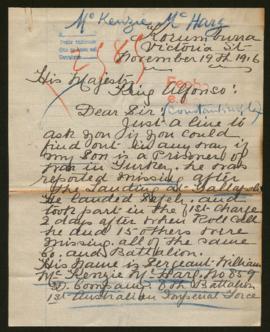 McKenzie McHarg
Korumburra
Victoria St
November 19th 1916
His Majesty
King Alfonso:
Dear Sir
(Constantinople)
Just a line to
ask you if you could
find out in any way if
my Son is a Prisoner of
War in Turkey, he was
reported missing after
The Landing at Gallapoli
He landed safely and
took part in the 1st Charge
2 days after when Roll Call
he and 15 others were
missing, all of the same
Co. and Battalion.
His Name is Sergeant William
McKenzie McHarg, No 859
D. Company 8th Battalion
1st Australian Imperial Force